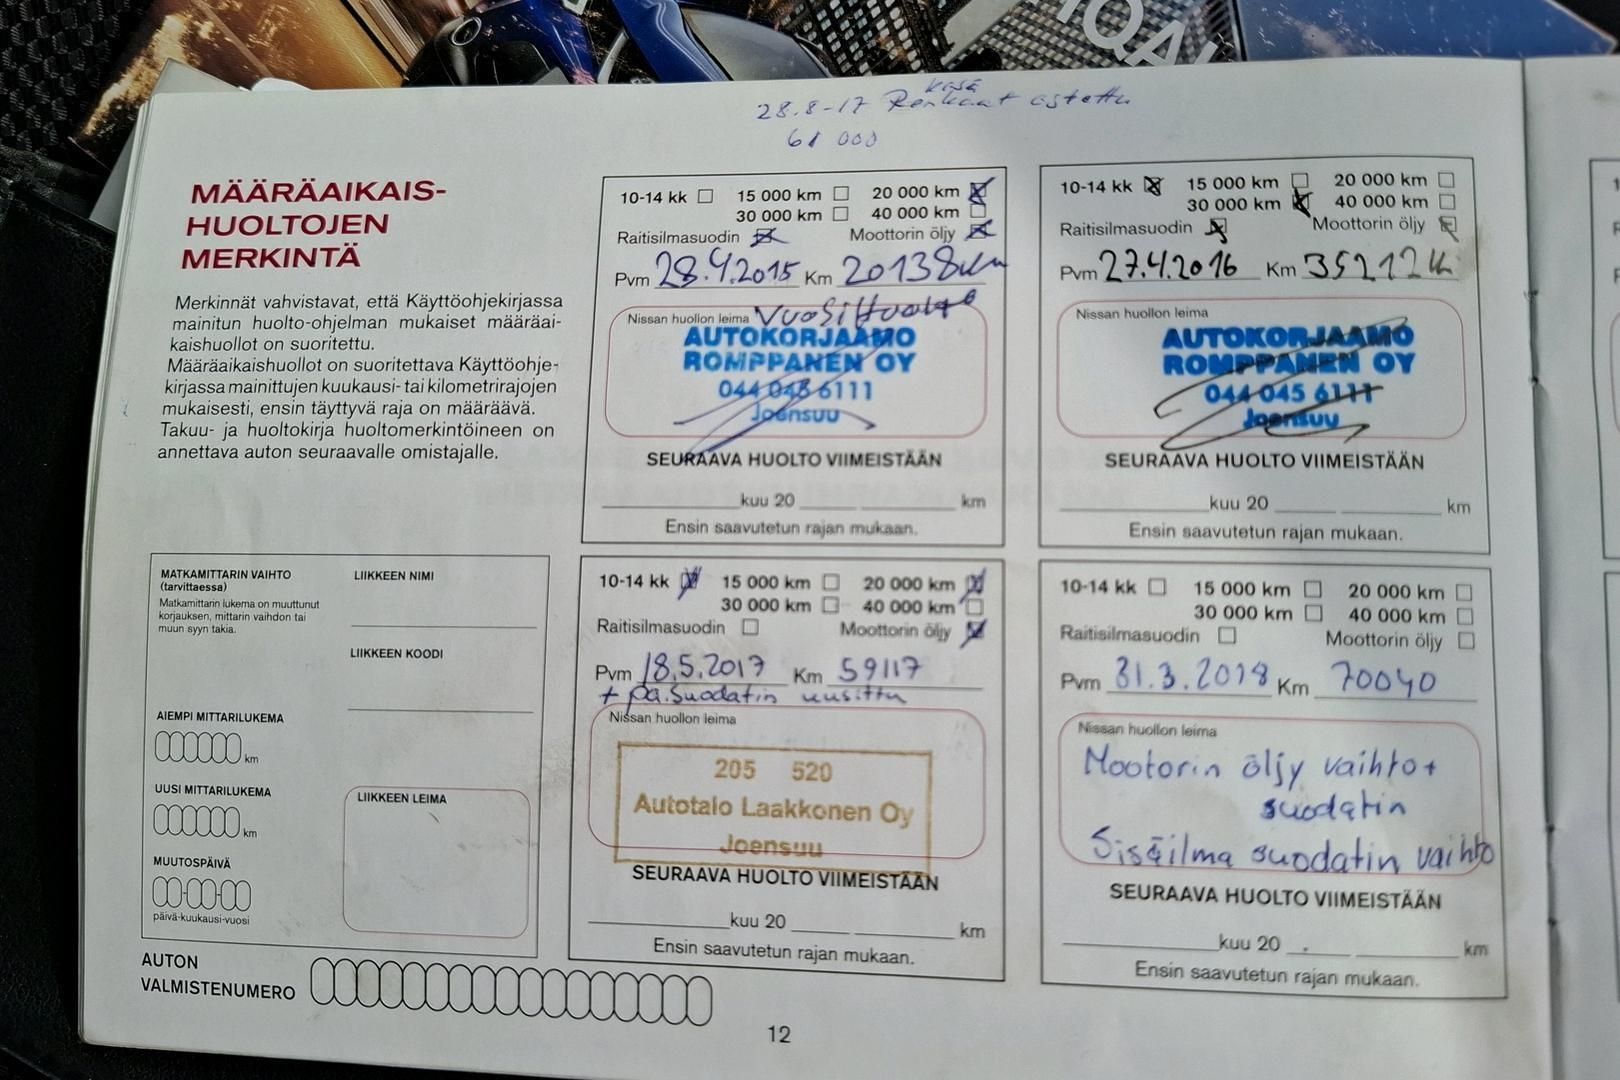 IQAI
kesä
28.8-17 Renkaat astettu
61 000
MÄÄRÄAIKAIS-
HUOLTOJEN
MERKINTÄ
Merkinnät vahvistavat, että Käyttöohjekirjassa
mainitun huolto-ohjelman mukaiset määräai-
kaishuollot on suoritettu.
Määräaikaishuollot on suoritettava Käyttöohje-
kirjassa mainittujen kuukausi- tai kilometrirajojen
mukaisesti, ensin täyttyvä raja on määräävä.
Takuu- ja huoltokirja huoltomerkintöineen on
annettava auton seuraavalle omistajalle.
10-14 kk 15 000 km 20 000 km
30 000 km 40 000 km
Raitisilmasuodin Moottorin öljy
Pvm 28.9.2015 Km 20138km
Nissan huollon leima Vuosihuolto
AUTOKORJAAMO
ROMPPANEN OY
044 045 6111
Joensuu
SEURAAVA HUOLTO VIIMEISTÄÄN
kuu 20 km
Ensin saavutetun rajan mukaan.
10-14 kk 15 000 km 20 000 km
30 000 km 40 000 km
Raitisilmasuodin Moottorin öljy
Pvm 27.4.2016 Km 35212
Nissan huollon leima
AUTOKORJAAMO
ROMPPANEN OY
044 045 6111
Joensuu
SEURAAVA HUOLTO VIIMEISTÄÄN
kuu 20 km
Ensin saavutetun rajan mukaan.
MATKAMITTARIN VAIHTO
(tarvittaessa)
Matkamittarin lukema on muuttunut
korjauksen, mittarin vaihdon tai
muun syyn takia.
LIIKKEEN NIMI
LIIKKEEN KOODI
AIEMPI MITTARILUKEMA
km
UUSI MITTARILUKEMA
km
MUUTOSPÄIVÄ
päivä-kuukausi-vuosi
LIIKKEEN LEIMA
10-14 kk 15 000 km 20 000 km
30 000 km 40 000 km
Raitisilmasuodin Moottorin öljy
Pvm 18.5.2017 Km 59117
+ pa.suodatin uusittu
Nissan huollon leima
205 520
Autotalo Laakkonen Oy
Joensuu
SEURAAVA HUOLTO VIIMEISTÄÄN
kuu 20 km
Ensin saavutetun rajan mukaan.
10-14 kk 15 000 km 20 000 km
30 000 km 40 000 km
Raitisilmasuodin Moottorin öljy
Pvm 31.3.2018 Km 70040
Nissan huollon leima
Mootorin öljy vaihto+
suodatin
Sisäilma suodatin vaihto
SEURAAVA HUOLTO VIIMEISTÄÄN
kuu 20 km
Ensin saavutetun rajan mukaan.
AUTON
VALMISTENUMERO
12